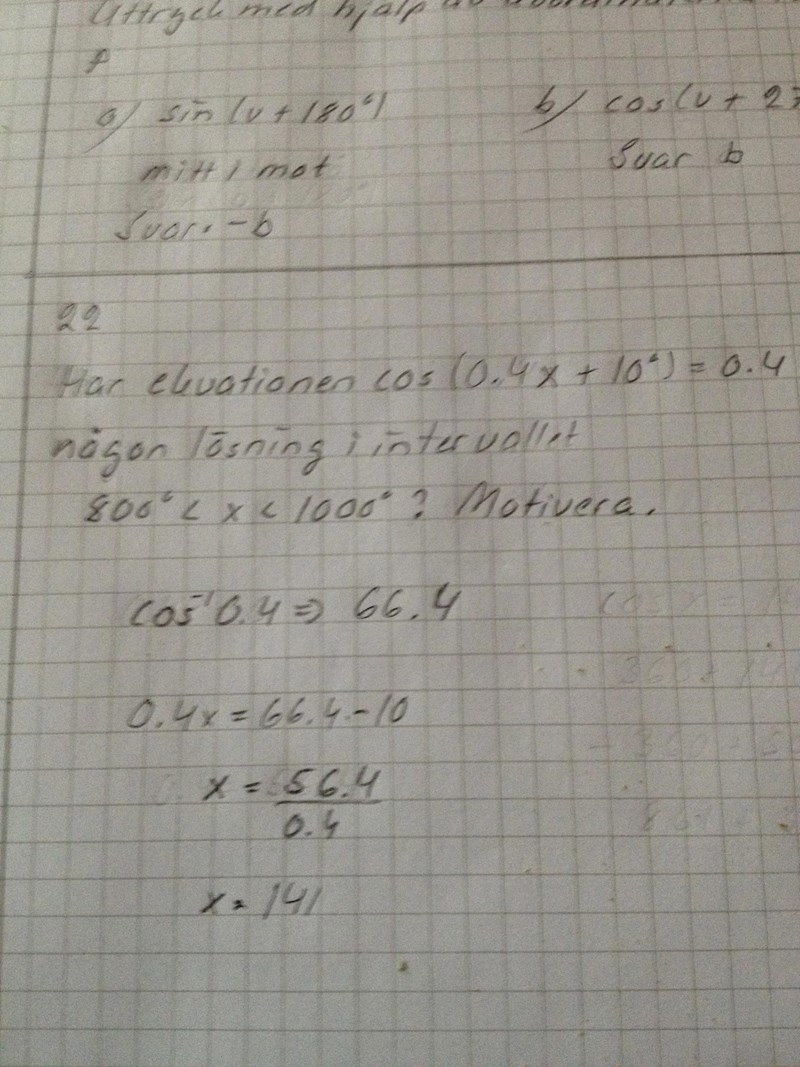 Uttryck med hjälp av
P
a) sin (v + 180°)
b) cos(v + 2
mitt i mot
Svar b
Svar. -b
22
Har ekvationen cos (0.4x + 10°) = 0.4
någon lösning i intervallet
800° < x < 1000° ? Motivera.
cos⁻¹ 0.4 => 66.4
0.4x = 66.4 - 10
x = 56.4
0.4
x = 141